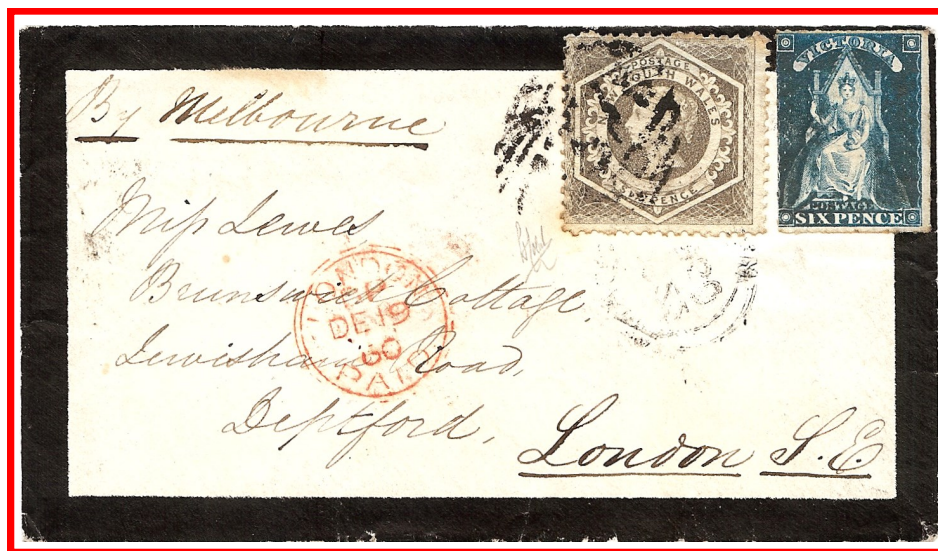 By Melbourne
POSTAGE
SOUTH WALES
SIXPENCE
VICTORIA
POSTAGE
SIX PENCE
Miss Lewes
Brunswick Cottage,
Lewisham Road,
Deptford,
London S.E
LONDON
DE 19
60
PAID